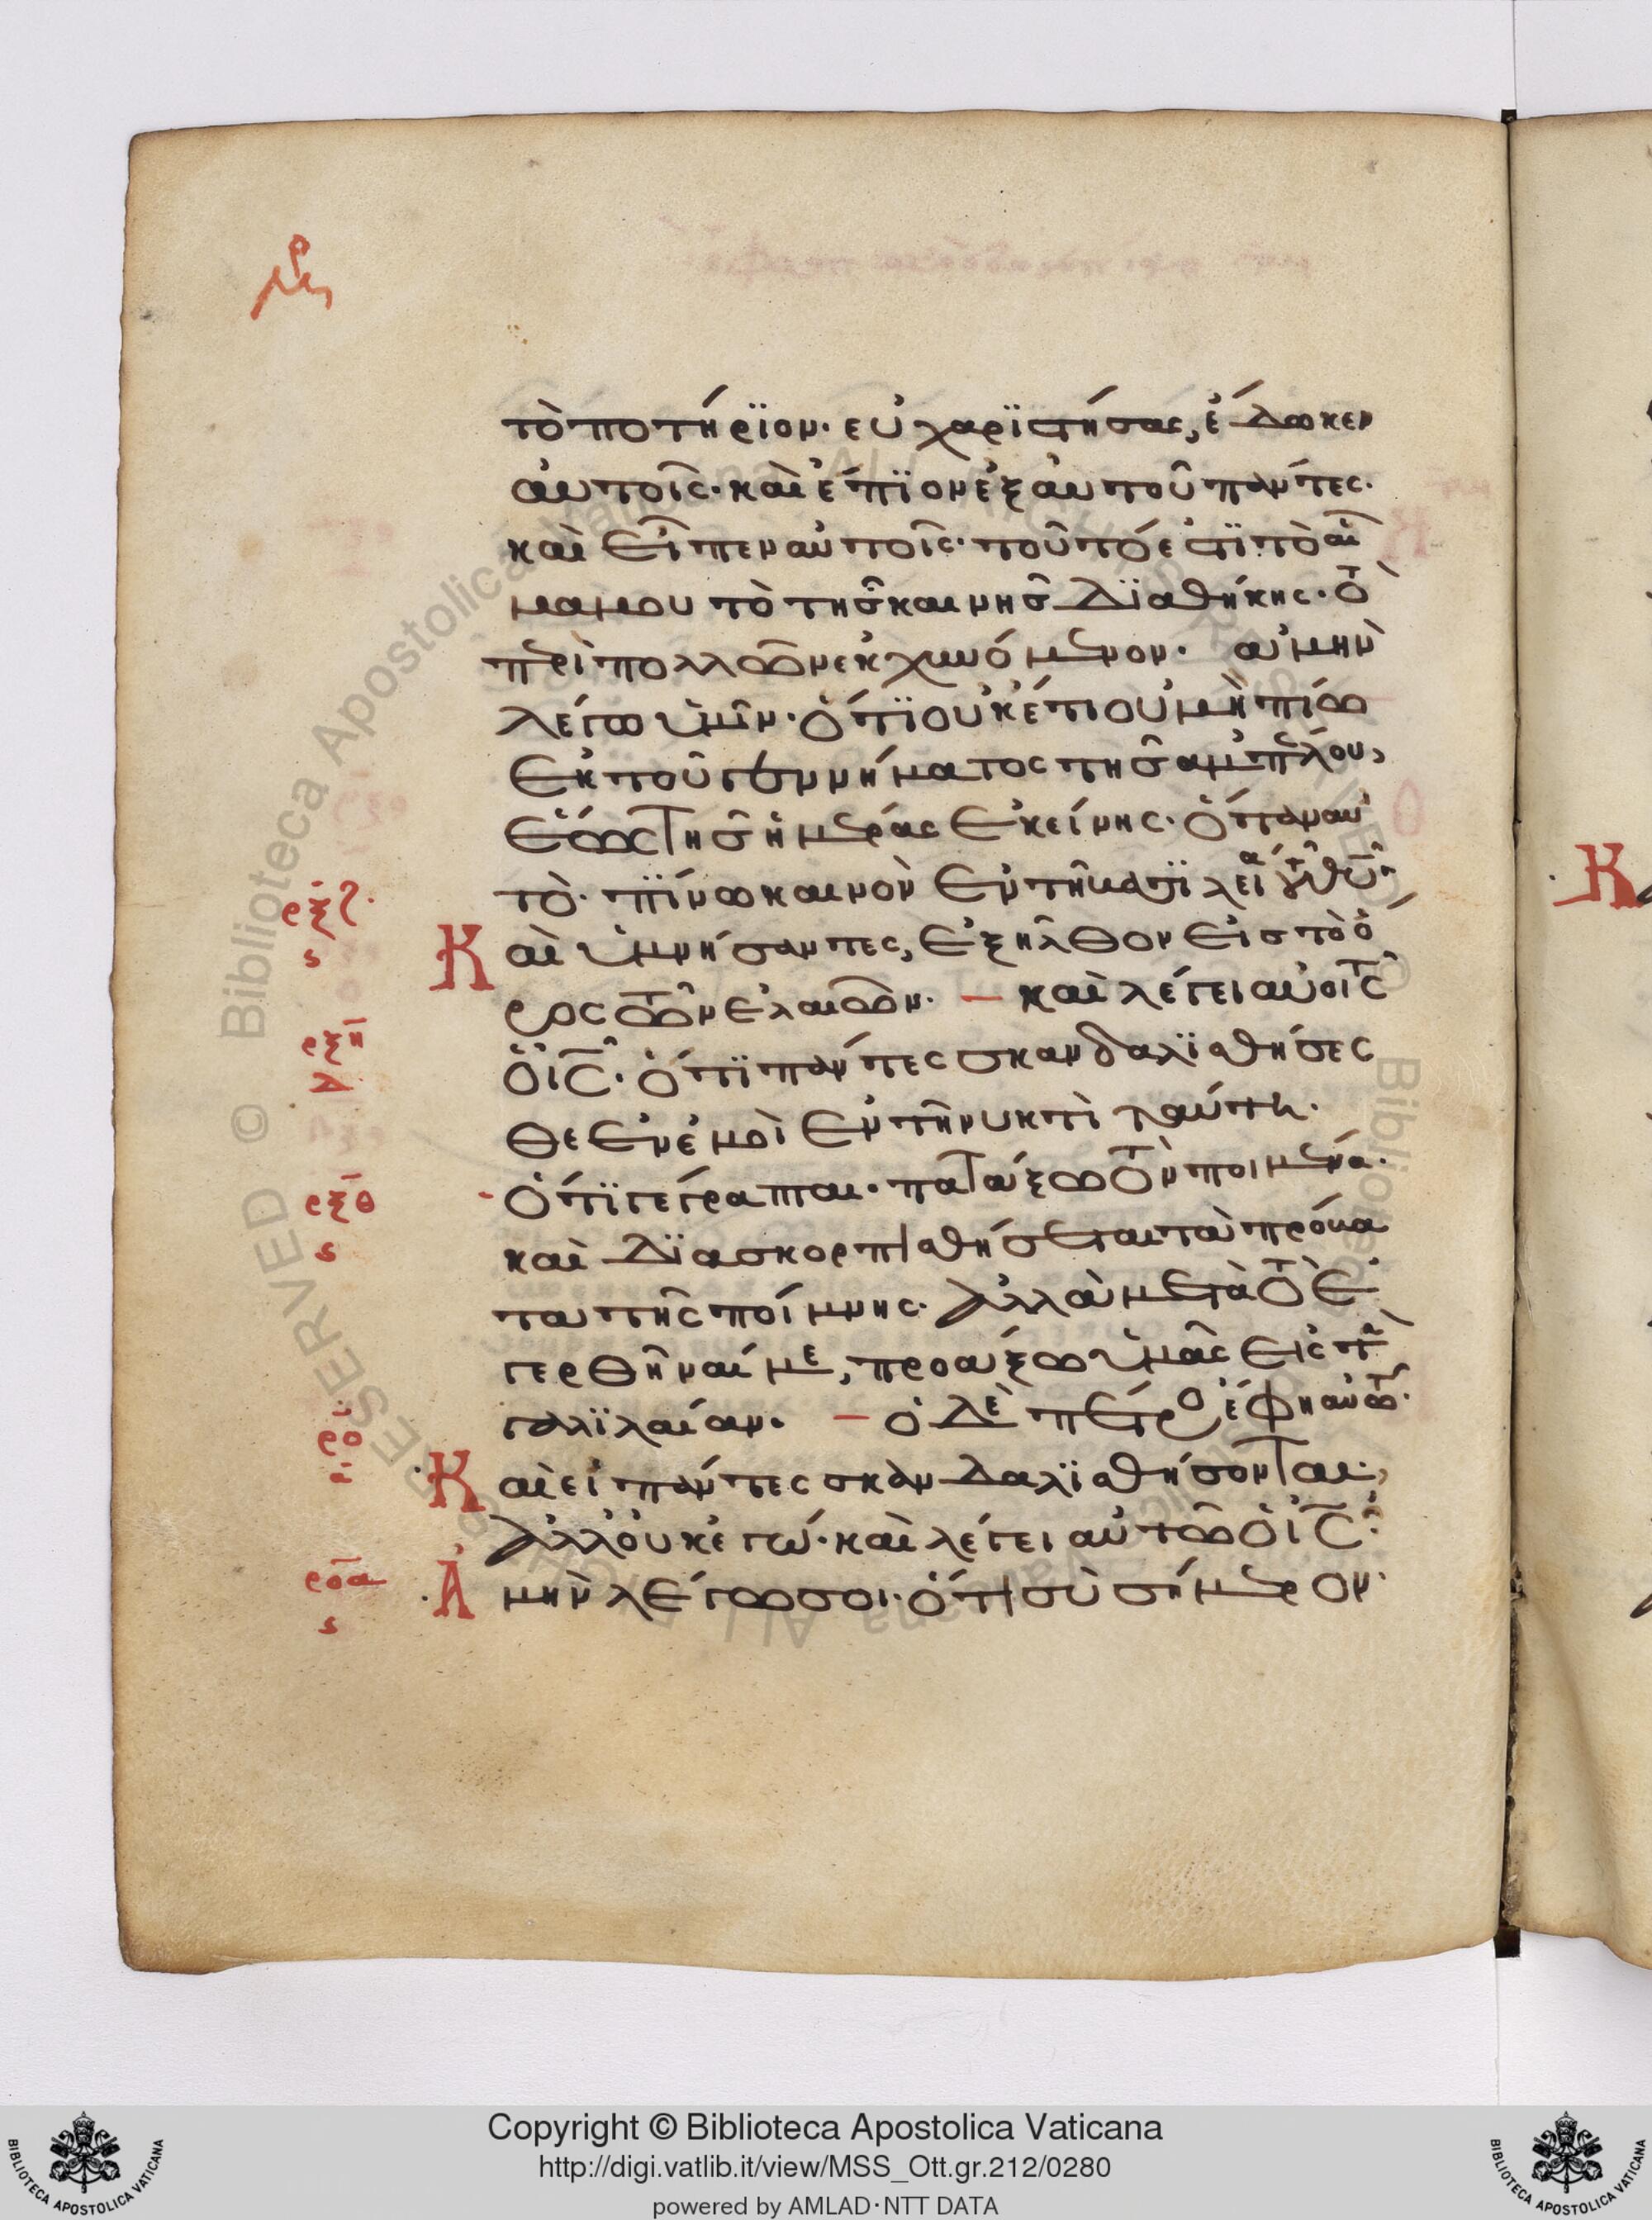 τὸ ποτήριον· εὐχαριστήσας, ἔδωκεν
αὐτοῖς· καὶ ἔπιον ἐξ αὐτοῦ πάντες·
καὶ εἶπεν αὐτοῖς· τοῦτό ἐστι τὸ αἷ
μα μου τὸ τῆς καινῆς διαθήκης· τὸ
περὶ πολλῶν ἐκχυνόμενον· ἀμὴν
λέγω ὑμῖν· ὅτι οὐκέτι οὐ μὴ πίω
ἐκ τοῦ γεννήματος τῆς ἀμπέλου,
ἕως τῆς ἡμέρας ἐκείνης· ὅταν αὐ
τὸ πίνω καινὸν ἐν τῇ βασιλείᾳ τοῦ θ̅υ̅
Καὶ ὑμνήσαντες, ἐξῆλθον εἰς τὸ ὄ
ρος τῶν ἐλαιῶν· – καὶ λέγει αὐτοῖς
ὁ ι̅ς̅· ὅτι πάντες σκανδαλισθήσεσ
θε ἐν ἐμοὶ ἐν τῇ νυκτὶ ταύτῃ·
ὅτι γέγραπται· πατάξω τὸν ποιμένα·
καὶ διασκορπισθήσεται τὰ πρόβα
τα τῆς ποίμνης· ἀλλὰ μετὰ τὸ ἐ
γερθῆναί με, προάξω ὑμᾶς εἰς τὴν
γαλιλαίαν· – ὁ δὲ πέτρος ἔφη αὐτῷ·
Καὶ εἰ πάντες σκανδαλισθήσονται,
ἀλλ' οὐκ ἐγώ· καὶ λέγει αὐτῷ ὁ ι̅ς̅·
Ἀμὴν λέγω σοι· ὅτι σὺ σήμερον
ρξη
δ
ρξθ
ς
ρο
α
ροα
ς
Copyright © Biblioteca Apostolica Vaticana
http://digi.vatlib.it/view/MSS_Ott.gr.212/0280
powered by AMLAD·NTT DATA
BIBLIOTECA APOSTOLICA VATICANA
BIBLIOTECA APOSTOLICA VATICANA